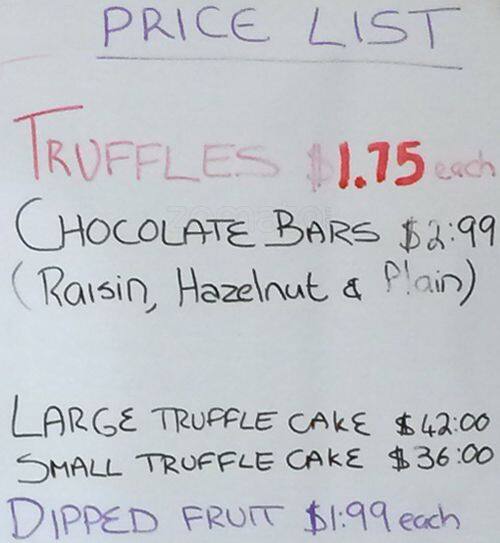 PRICE LIST
TRUFFLES $1.75 each
CHOCOLATE BARS $2:99
(Raisin, Hazelnut & Plain)
LARGE TRUFFLE CAKE $42:00
SMALL TRUFFLE CAKE $36:00
DIPPED FRUIT $1:99 each